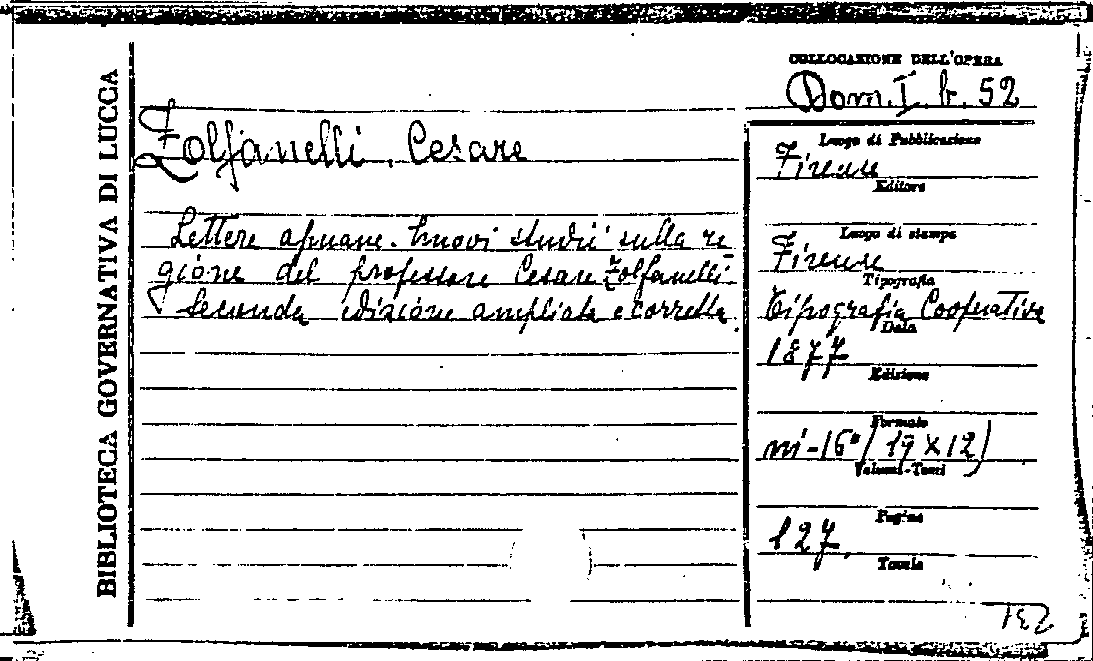 BIBLIOTECA GOVERNATIVA DI LUCCA
COLLOCAZIONE DELL'OPERA
Dom. I. b. 52
Zolfanelli, Cesare
Lettere apuane. Nuovi studii sulla re
gione del professore Cesare Zolfanelli.
Seconda edizione ampliata e corretta.
Luogo di Pubblicazione
Firenze
Editore
Luogo di stampa
Firenze
Tipografia
Tipografia Cooperativa
Data
1877
Edizione
Formato
in-16° (19 x 12)
Volumi-Tomi
Pagine
127.
Tavole